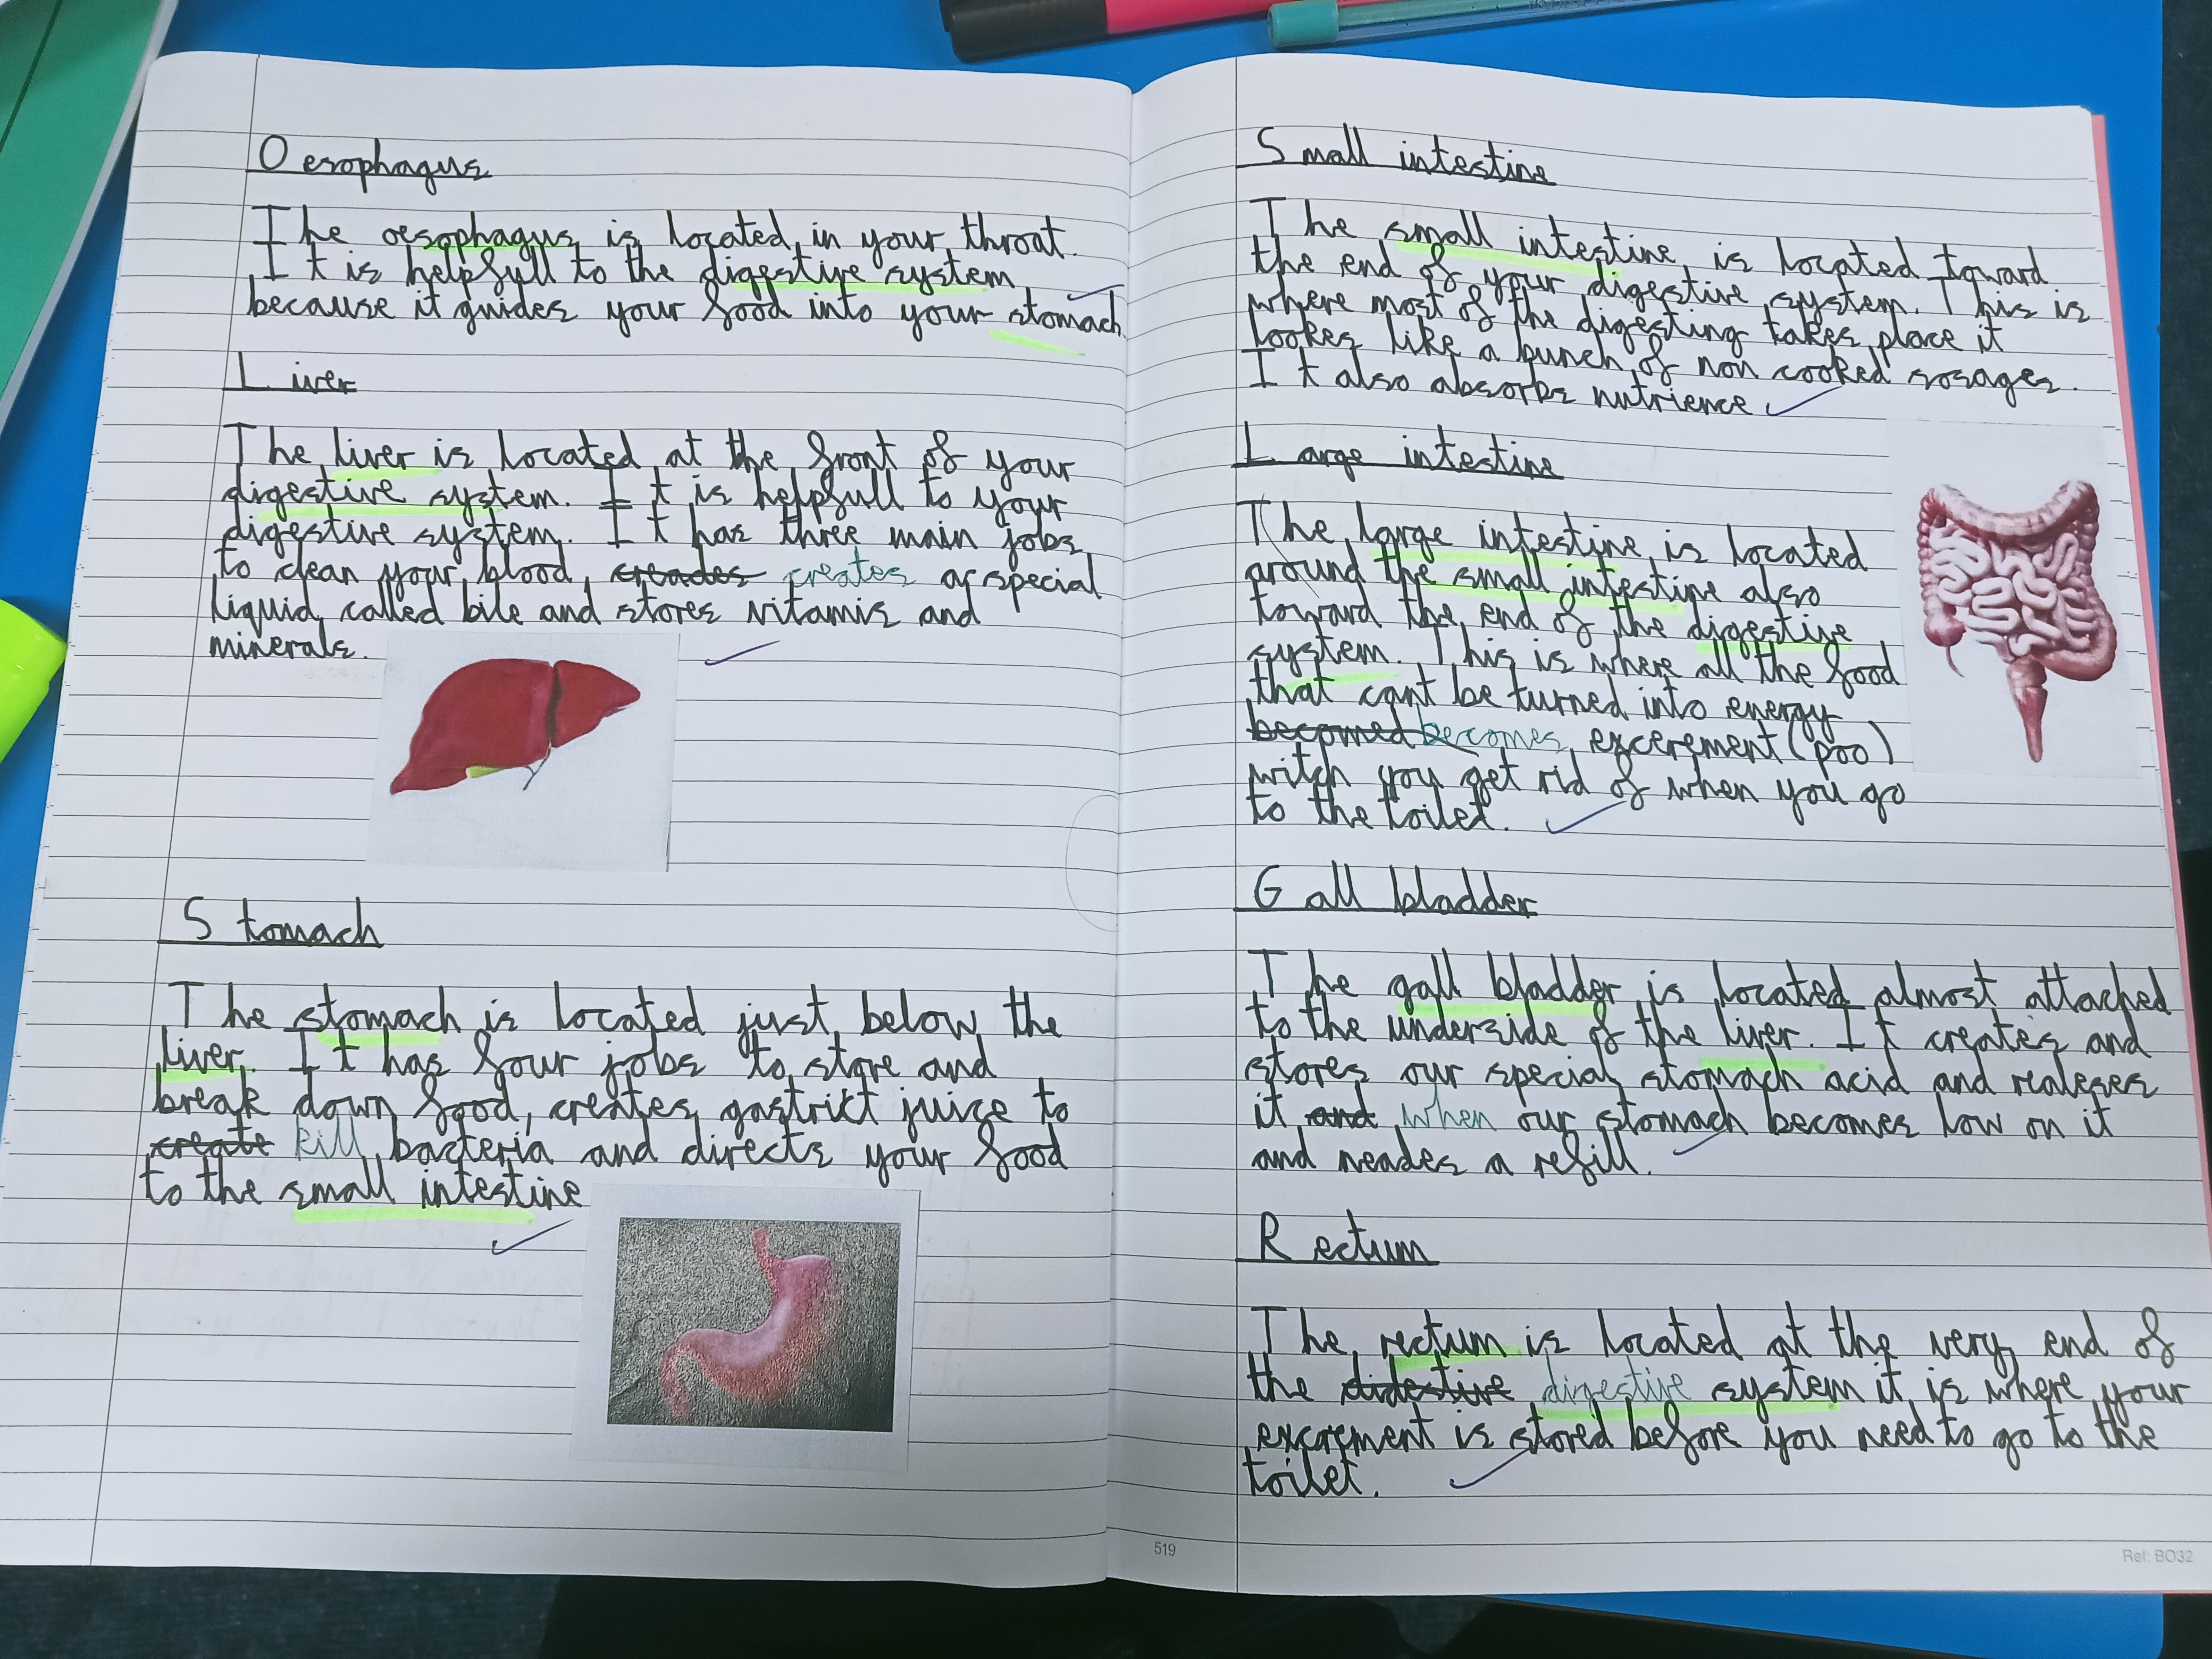 Oesophagus
The oesophagus is located in your throat.
It is helpfull to the digestive system
because it guides your food into your stomach
Liver
The liver is located at the front of your
digestive system. It is helpfull to your
digestive system. It has three main jobs
to clean your blood, creades creates a special
liquid called bile and stores vitamis and
minerals.
Stomach
The stomach is located just below the
liver. It has four jobs to store and
break down food, creates gastrict juice to
create kill bacteria and directs your food
to the small intestine
Small intestine
The small intestine is located toward
the end of your digestive system. This is
where most of the digesting takes place it
lookes like a bunch of non cooked sosages.
It also absorbs nutrience
Large intestine
The large intestine is located
around the small intestine also
toward the end of the digestive
system. This is where all the food
that cant be turned into energy
becomed becomes excerement (poo)
witch you get rid of when you go
to the toilet.
Gall bladder
The gall bladder is located almost attached
to the underside of the liver. It creates and
stores our special stomach acid and realeses
it and when our stomach becomes low on it
and neades a refill.
Rectum
The rectum is located at the very end of
the didestive digestive system it is where your
excrement is stored before you need to go to the
toilet.
519
Ref: BO32